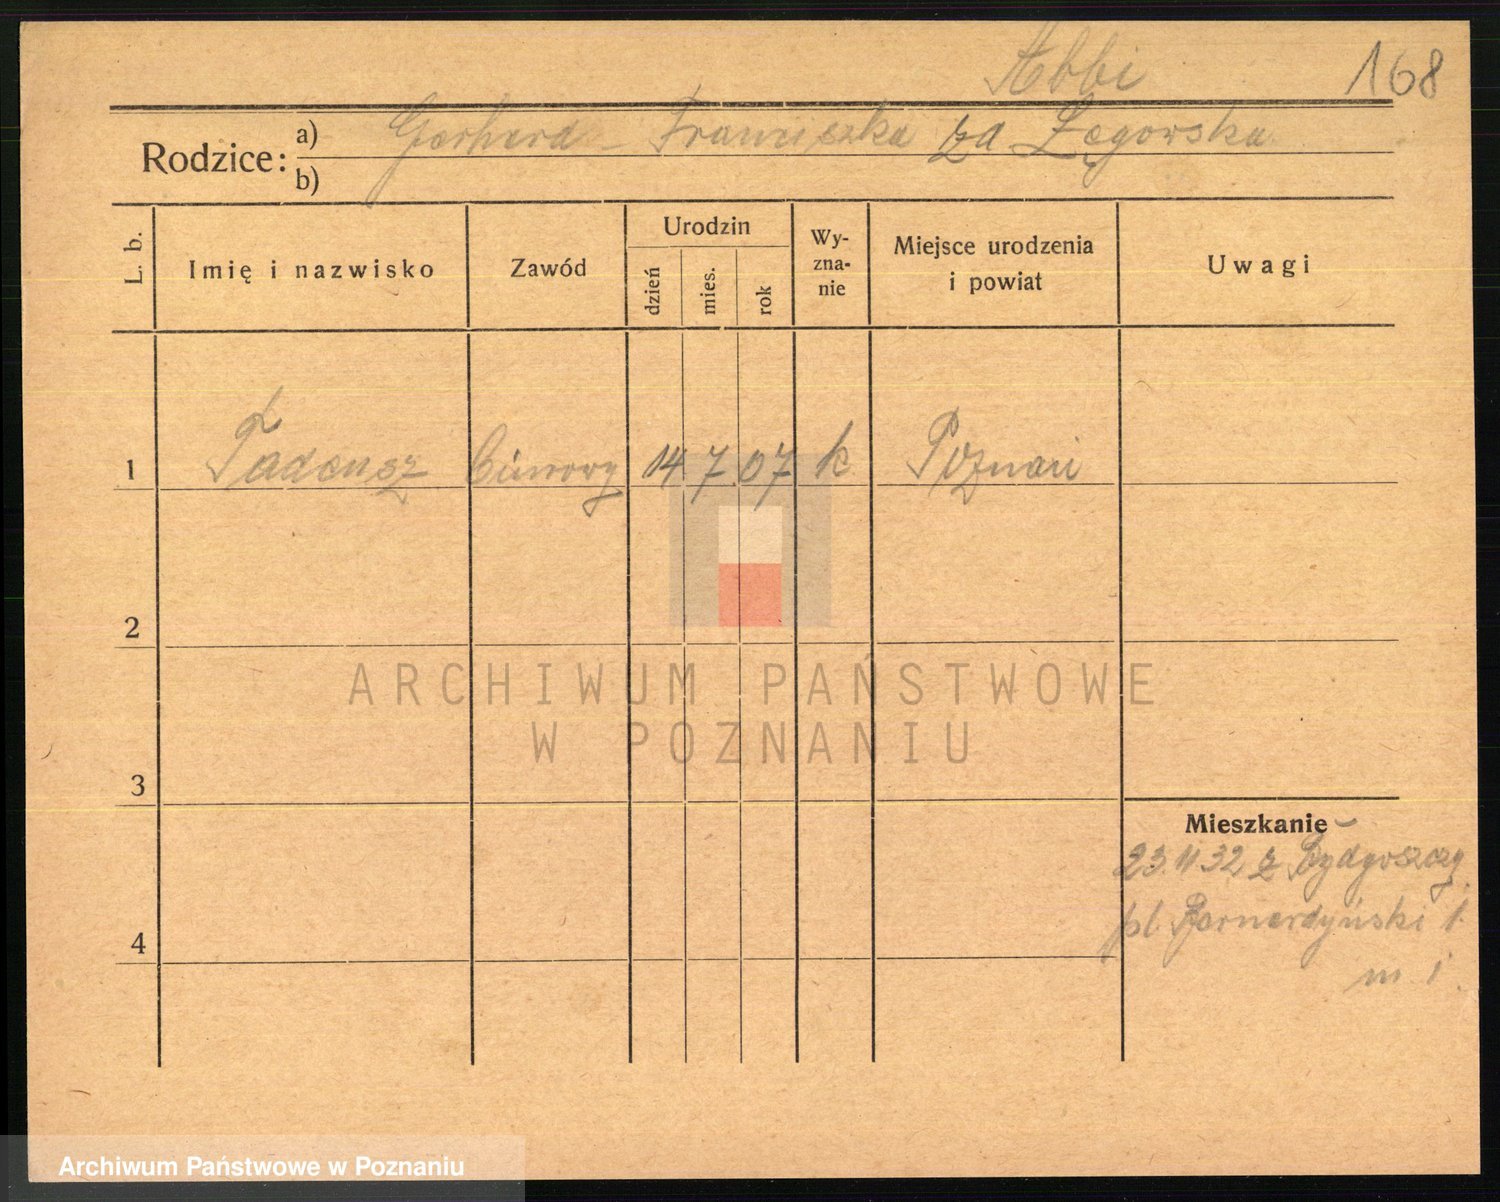 Abbi
168
Rodzice:
a) Gerhard - Franciszka za Łęgowska
b)
L. b.
Imię i nazwisko
Zawód
Urodzin
dzień
mies.
rok
Wy-
zna-
nie
Miejsce urodzenia
i powiat
Uwagi
1 Tadeusz 14 7 07 k Poznań
2
3
4
Mieszkanie
23.11.32 z Bydgoszczy
pl. Bernardyński 1.
m 1.
ARCHIWUM PAŃSTWOWE
W POZNANIU
Archiwum Państwowe w Poznaniu